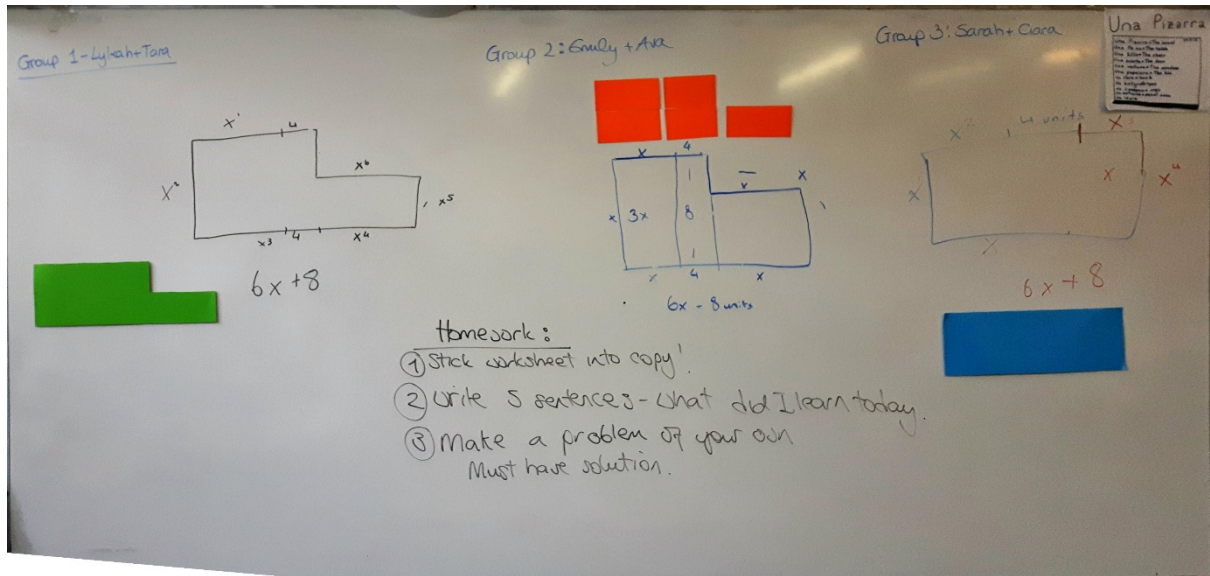 Group 1 - Lyleah + Tara
x¹ 4
x²
x⁶
x⁵
x3 4 x4
6x + 8
Group 2: Emily + Ava
x 4
x x
x 3x 8
4 x
6x - 8 units
Group 3: Sarah + Ciara
x² 4 units x³
x x⁴
x
x
6x + 8
Una Pizarra
Homework:
① Stick worksheet into copy!
② Write 5 sentences - what did I learn today.
③ Make a problem of your own
Must have solution.